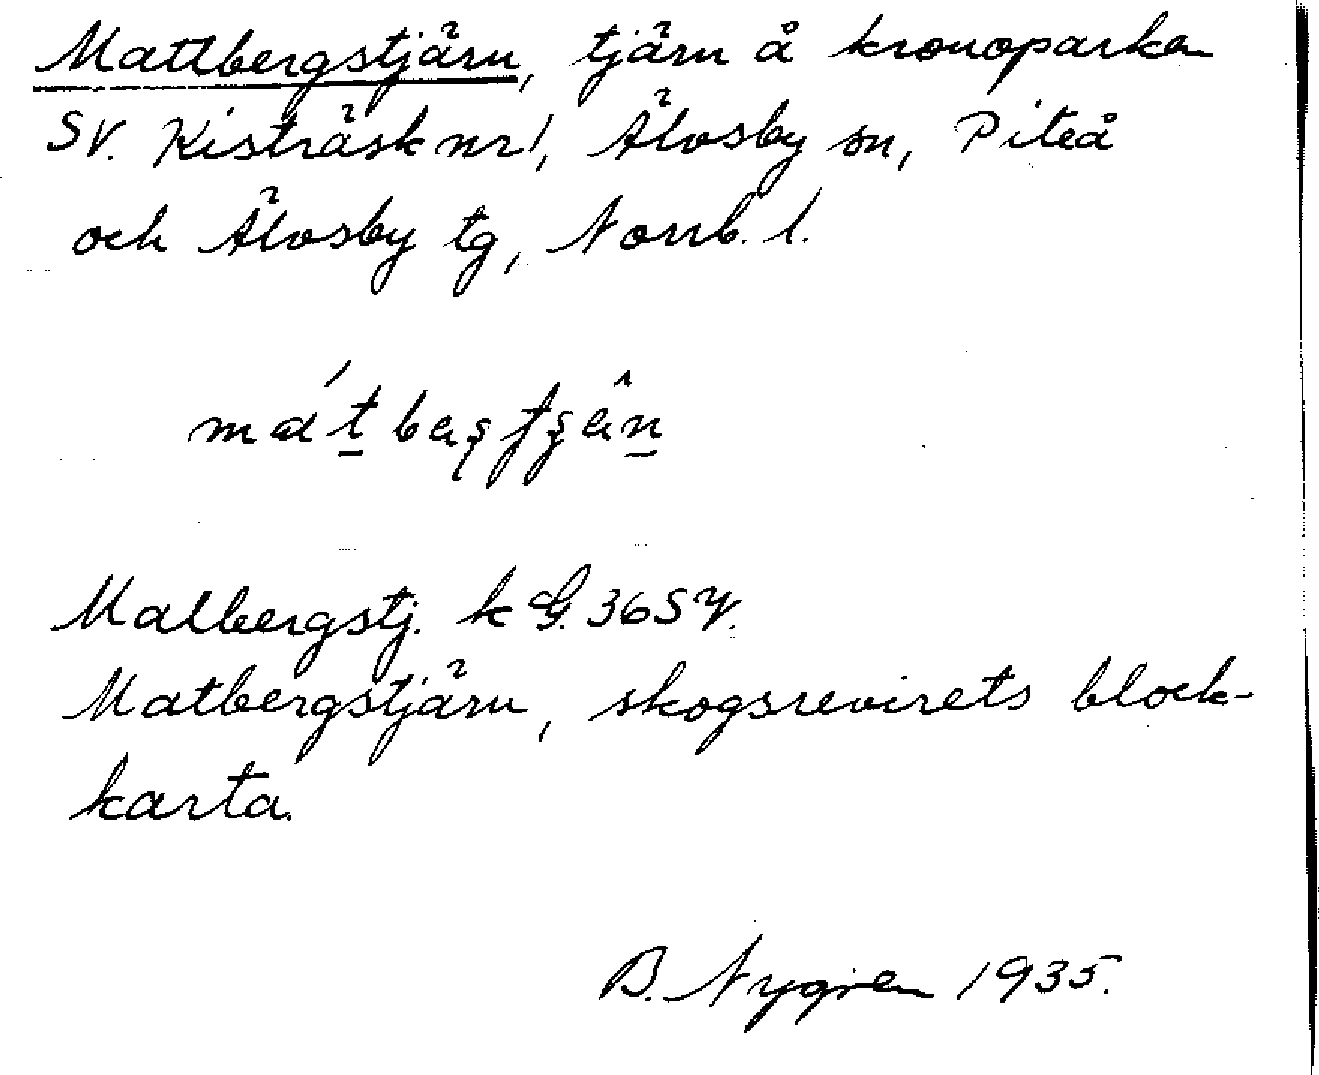 Mattbergstjärn, tjärn å kronoparken
SV. Kisträsk nr 1, Älvsby sn, Piteå
och Älvsby tg, Norrb. l.
Malbergstj. k G. 36 SV.
Matbergstjärn, skogsrevirets block-
karta.
B. Nygren 1935.